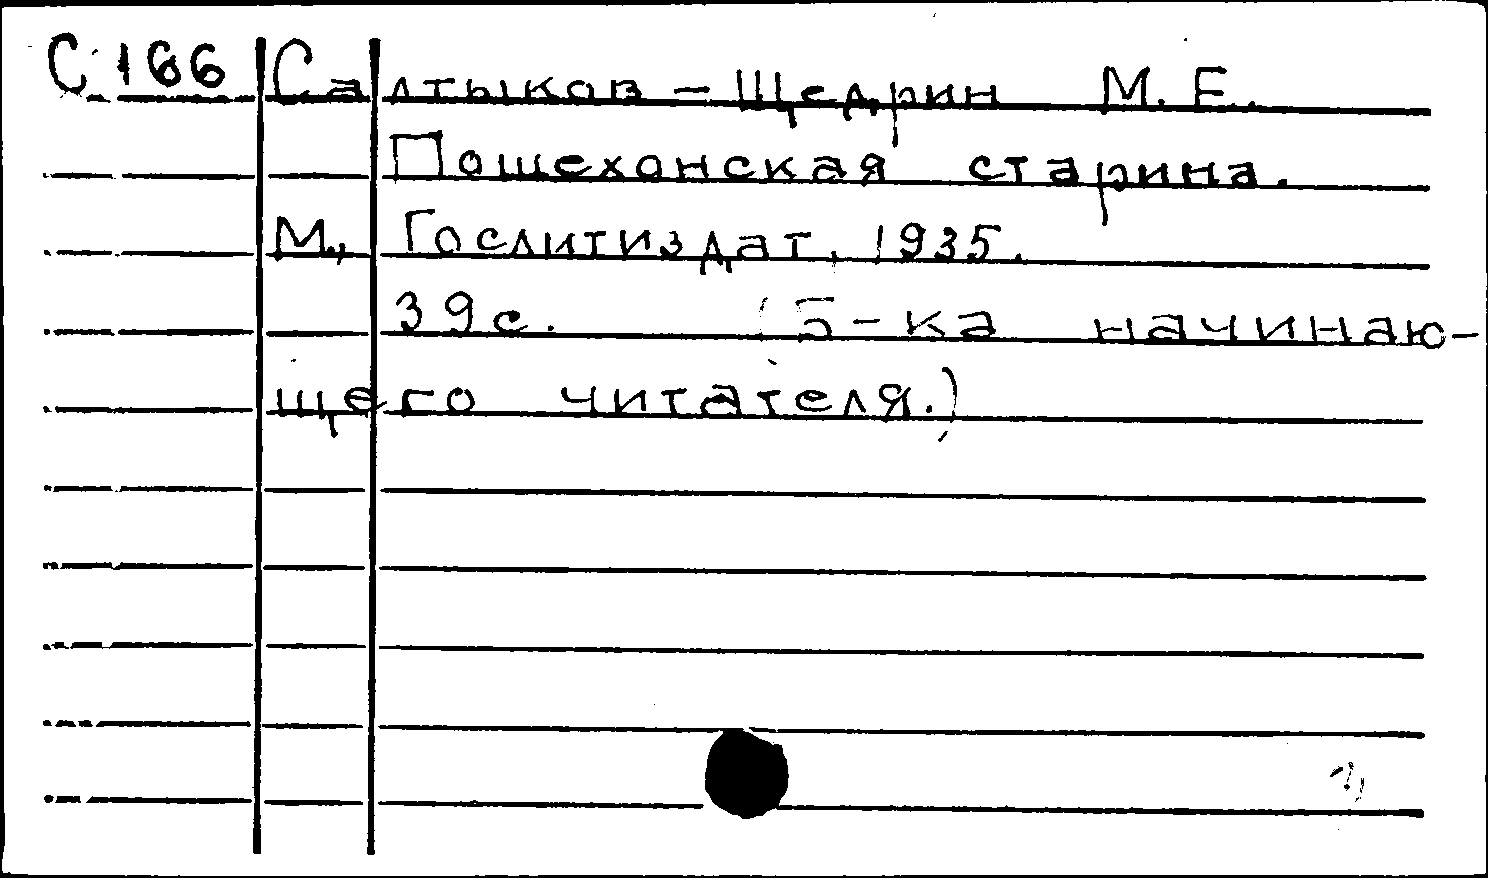 С 166 Салтыков-Щедрин М.Е.
Пошехонская старина.
М., Гослитиздат, 1935.
39с. (Б-ка начинаю-
щего читателя.)